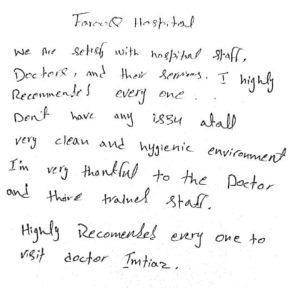 FarooQ Hospital
we are setisfy with hospital staff,
Doctors, and their services. I highly
Recommended every one . .
Don't have any issu atall
very clean and hygienic environment
I'm very thankful to the Doctor
and there trained staff.
Highly Recomended every one to
visit doctor Imtiaz.